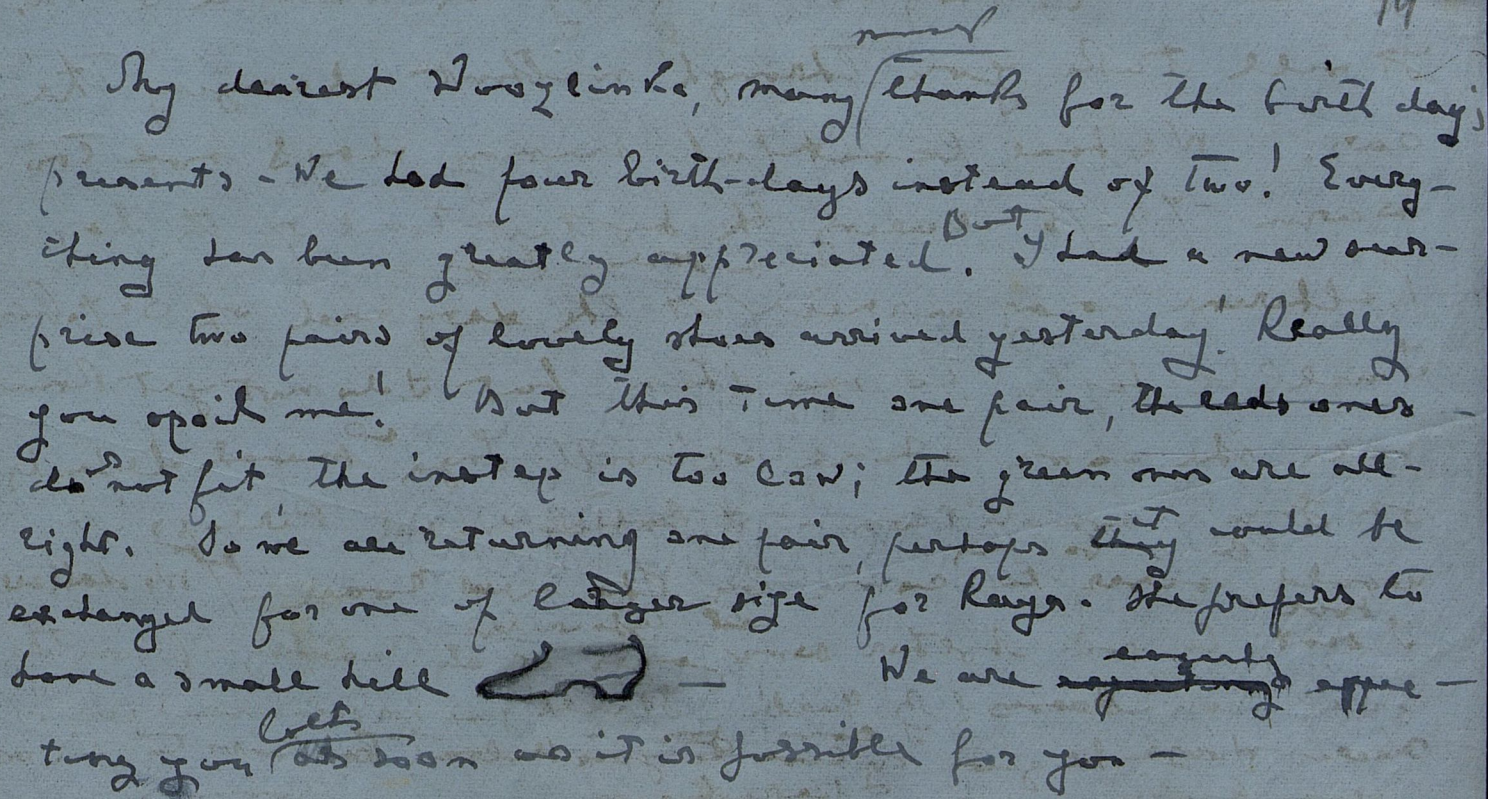 My dearest Woozlinka, many thanks for the birthday's
presents - We had four birth-days instead of two! Every-
thing has been greatly appreciated. But I had a new sur-
prise two pairs of lovely shoes arrived yesterday! Really
you spoil me! But this time one pair, the ones -
do not fit, the instep is too low; the green ones are all-
right. So we are returning one pair, perhaps it could be
exchanged for one of larger size for Raya. She prefers to
have a small hill — We are eagerly expec-
ting you both as soon as it is possible for you -